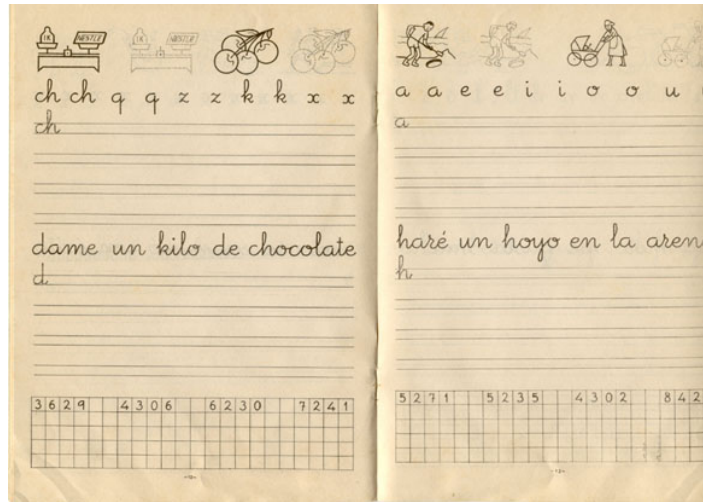 1K NESTLE 1K NESTLE
ch ch q q z z k k x x
ch
dame un kilo de chocolate
d
3629 4306 6230 7241
a a e e i i o o u
a
haré un hoyo en la aren
h
5271 5235 4302 842